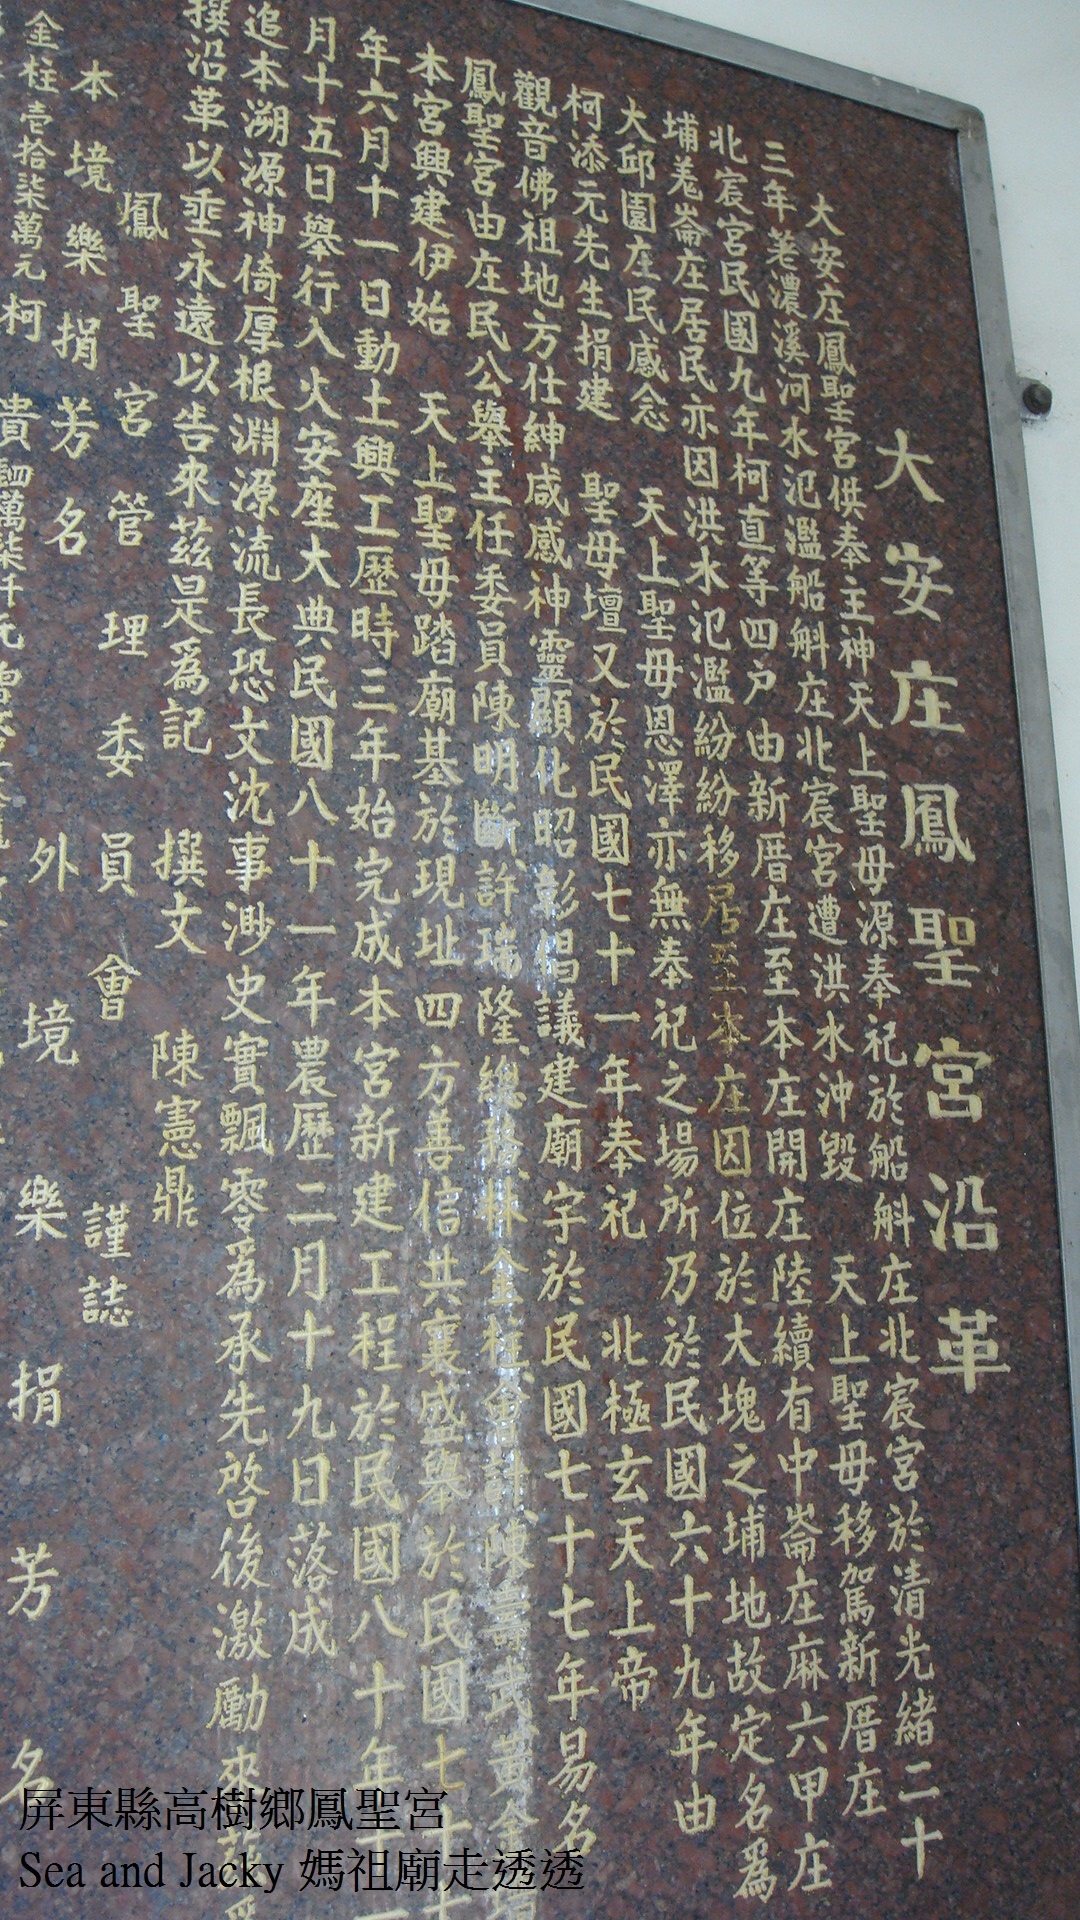 大安庄鳳聖宮沿革
大安庄鳳聖宮供奉主神天上聖母源奉祀於船斛庄北宸宮於清光緒二十
三年荖濃溪河水氾濫船斛庄北宸宮遭洪水沖毀 天上聖母移駕新厝庄
北宸宮民國九年柯直等四户由新厝庄至本庄開庄陸續有中崙庄麻六甲庄
埔羗崙庄居民亦因洪水氾濫紛紛移居至本庄因位於大塊之埔地故定名爲
大邱園庄民感念 天上聖母恩澤亦無奉祀之場所乃於民國六十九年由
柯添元先生捐建 聖母壇又於民國七十一年奉祀 北極玄天上帝
觀音佛祖地方仕紳咸感神靈顯化昭彰倡議建廟宇於民國七十七年易名
鳳聖宮由庄民公舉主任委員陳明斷許瑞隆、總務、林金柱、會計、陳壽武、黃金
本宮興建伊始 天上聖母踏廟基於現址四方善信共襄盛舉於民國七十
年六月十一日動土興工歷時三年始完成本宮新建工程於民國八十年十
月十五日舉行入火安座大典民國八十一年農歷二月十九日落成
追本溯源神倚厚根淵源流長恐文沈事渺史實飄零爲承先啓後激勵來茲
撰沿革以垂永遠以告來茲是爲記 撰文 陳憲鼎
鳳聖宮管理委員會 謹誌
本境樂捐芳名 外境樂捐芳名
金柱壹拾柒萬元柯 貴
屏東縣高樹鄉鳳聖宮
Sea and Jacky 媽祖廟走透透